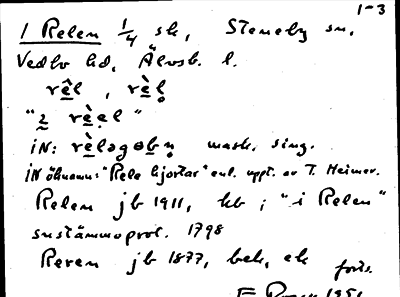 1-3
1 Relen 1/4 sk, Steneby sn,
Vedbo hd, Älvsb. l.
rê̱l, rè̱l̥
"2̰ rè̱ẹl"
iN: rè̱ləgɵb̲n̥ mask. sing.
iN öknamn: "Rele hjortar" enl. uppt. av T. Heimer.
Relen jb 1911, kb ; "i Relen"
sustämmoprot. 1798
Reren jb 1877, bek, ek forts.
1951